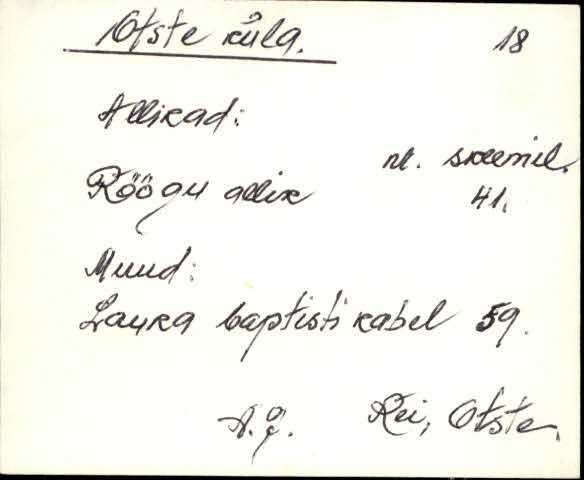 Otste küla. 18
Allikad:
nr. skeemil.
Röögu allik 41.
Muud:
Lauka baptisti kabel 59.
Rei, Otste.